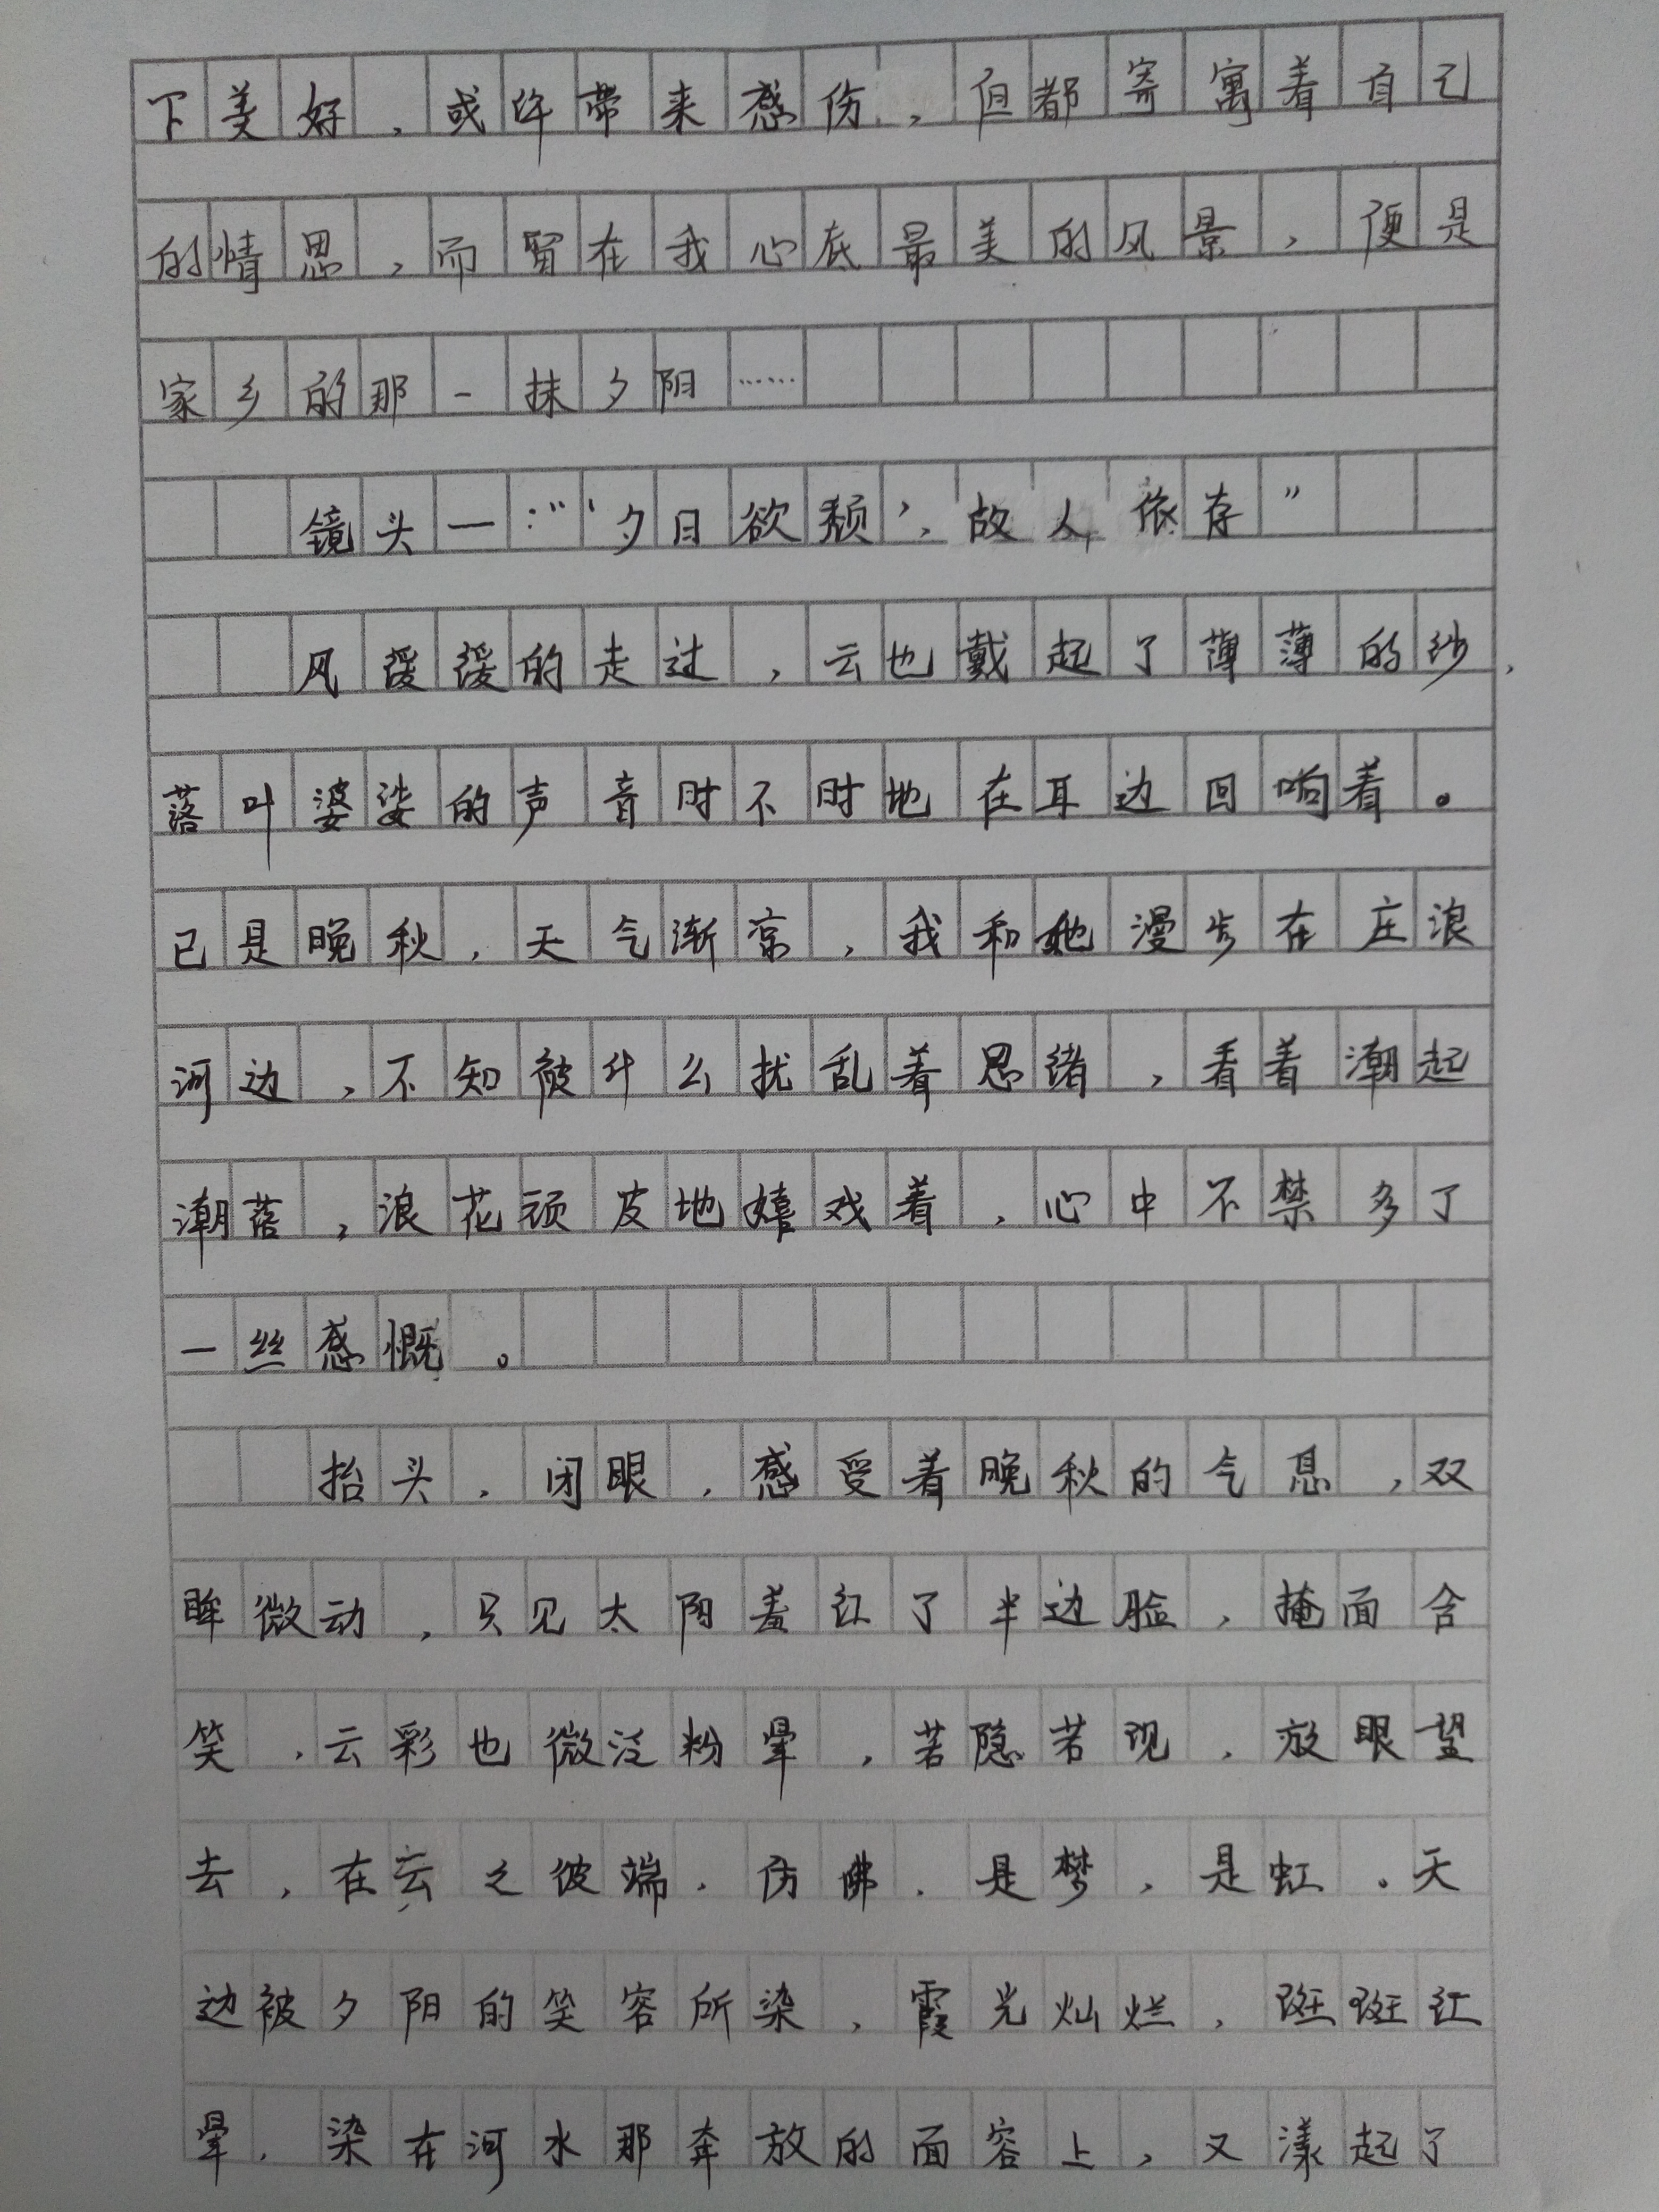 下美好，或许带来感伤，但都寄寓着自己
的情思，而留在我心底最美的风景，便是
家乡的那一抹夕阳……
镜头一：“‘夕日欲颓’，故人依存”
风缓缓的走过，云也戴起了薄薄的纱，
落叶婆娑的声音时不时地在耳边回响着。
已是晚秋，天气渐凉，我和她漫步在庄浪
河边，不知被什么扰乱着思绪，看着潮起
潮落，浪花顽皮地嬉戏着，心中不禁多了
一丝感慨。
抬头，闭眼，感受着晚秋的气息，双
眸微动，只见太阳羞红了半边脸，掩面含
笑，云彩也微泛粉晕，若隐若现，放眼望
去，在云之彼端，仿佛，是梦，是虹。天
边被夕阳的笑容所染，霞光灿烂，斑斑红
晕，染在河水那奔放的面容上，又漾起了